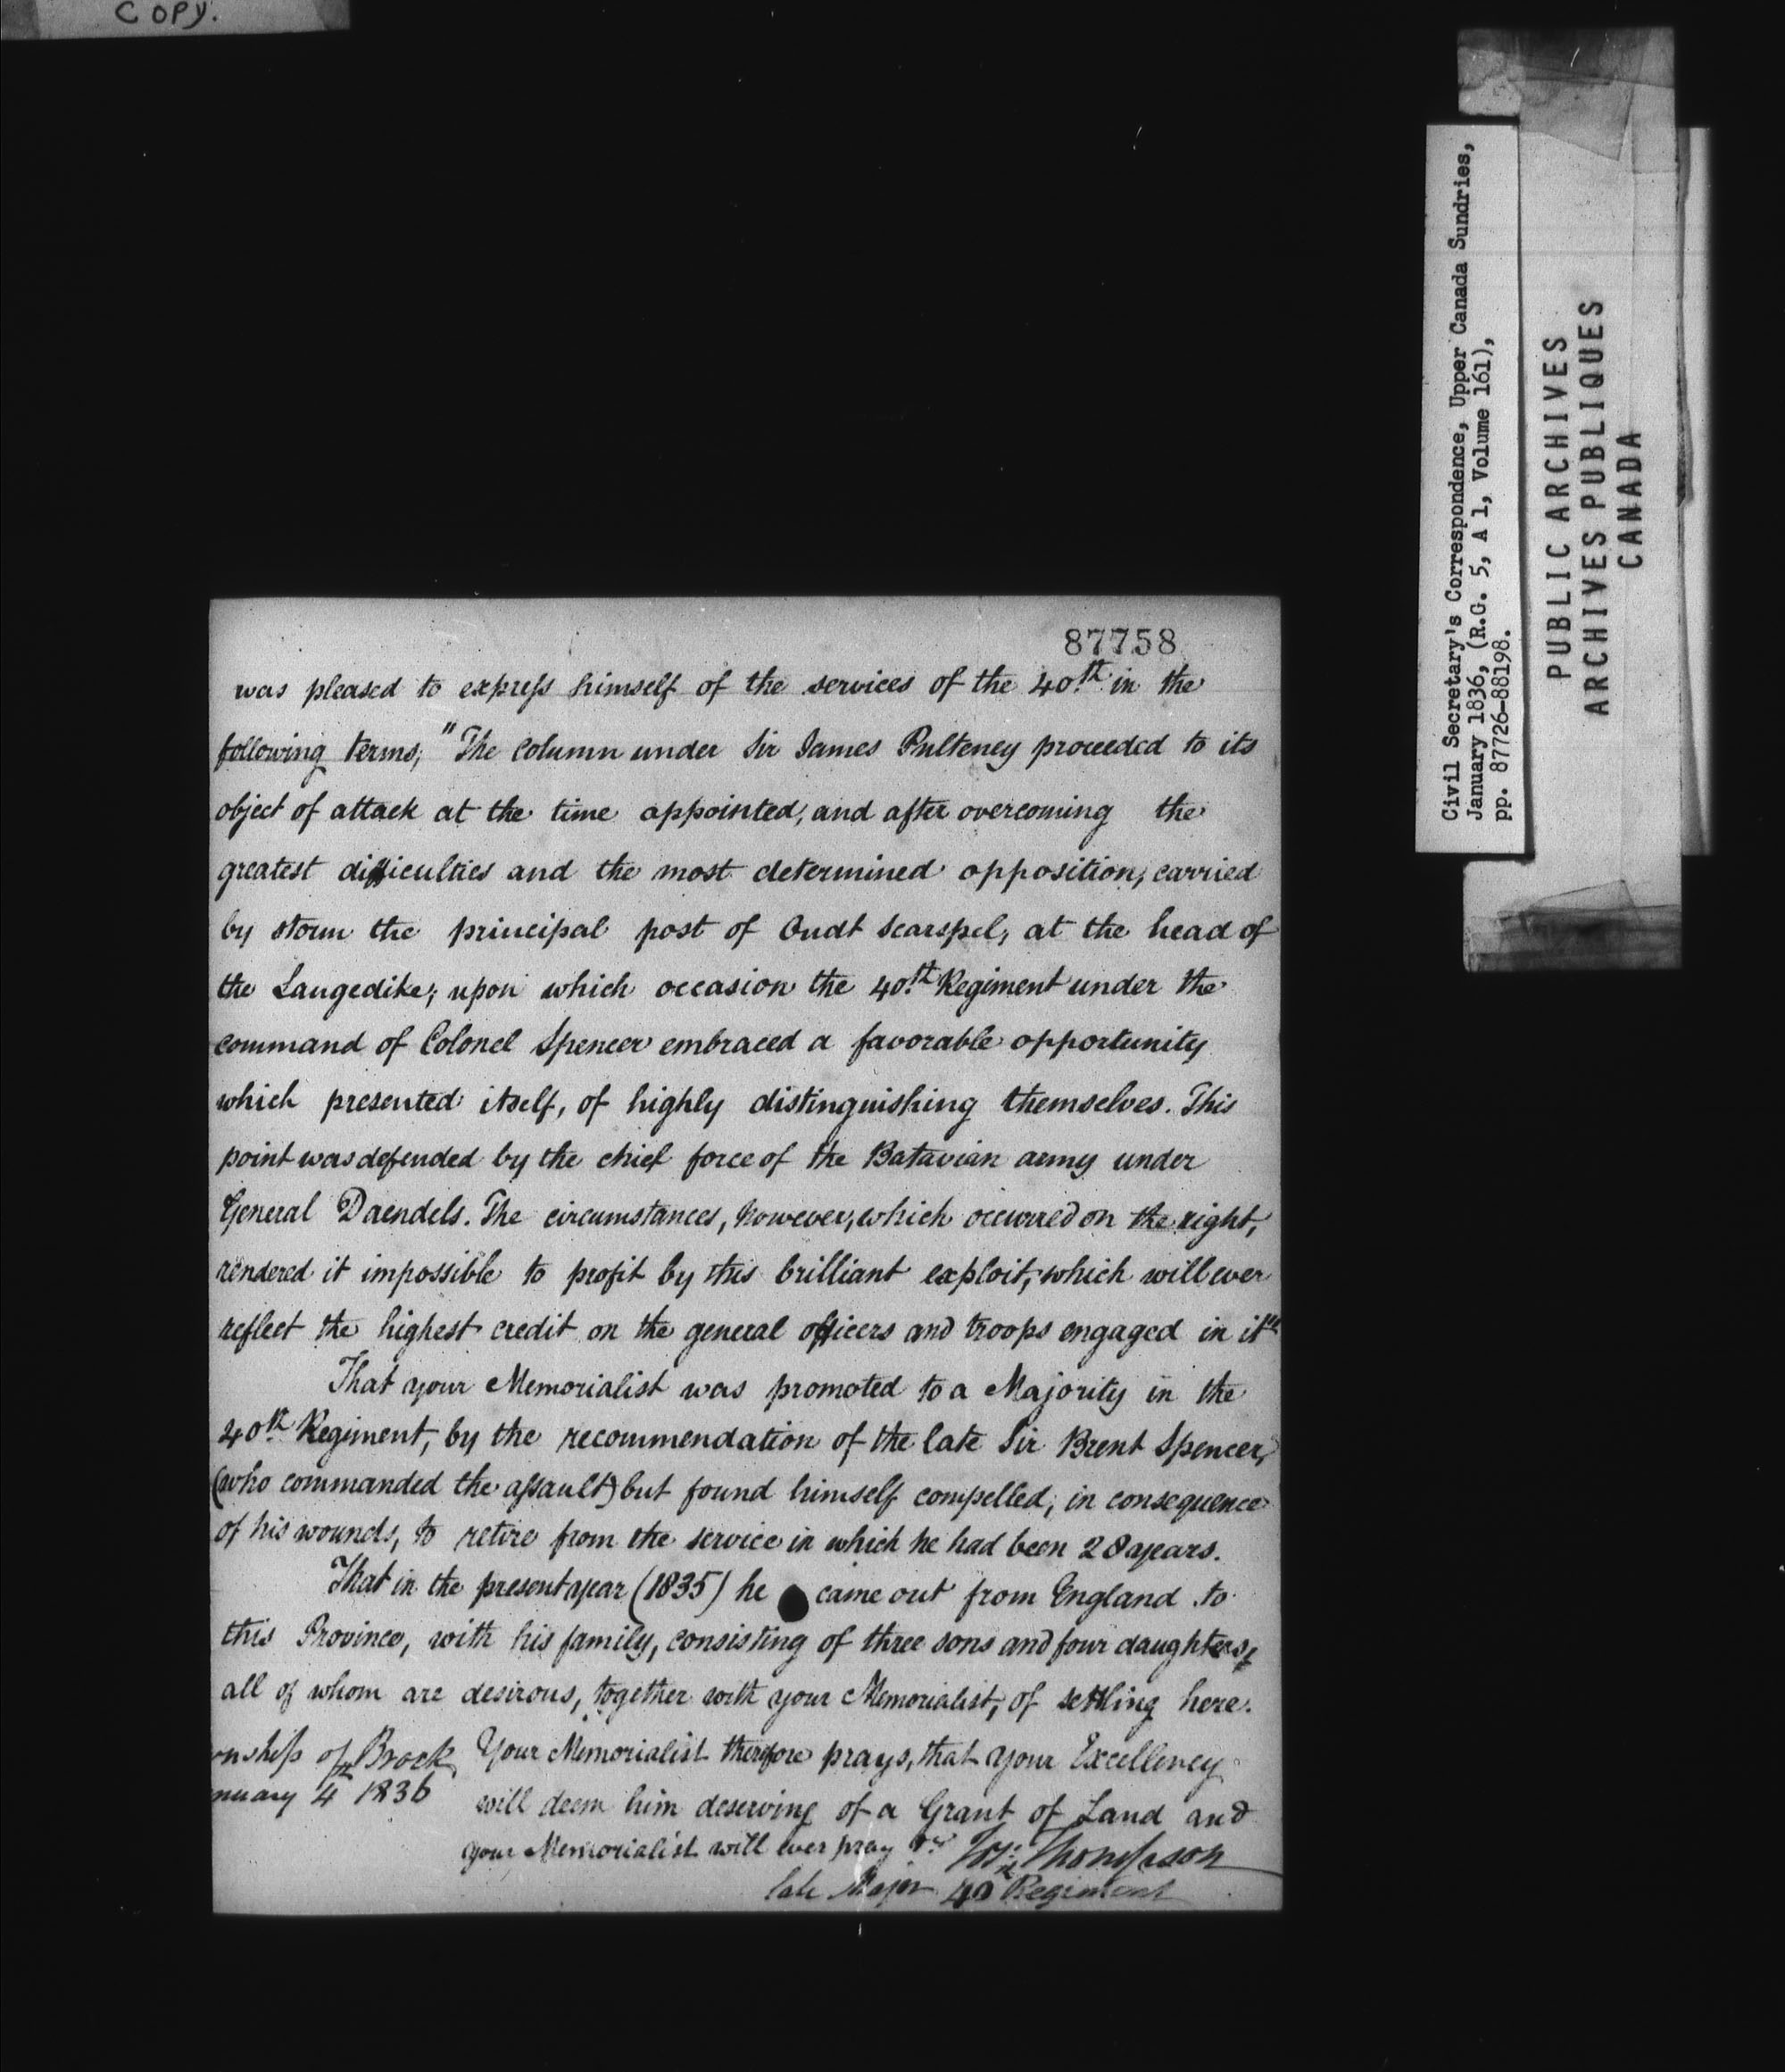 COPY.
87758
was pleased to express himself of the services of the 40th in the
following terms; "The Column under Sir James Pulteney proceeded to its
object of attack at the time appointed, and after overcoming the
greatest difficulties and the most determined opposition, carried
by storm the principal post of Oudt Scarspel, at the head of
the Langedike; upon which occasion the 40th Regiment under the
command of Colonel Spencer embraced a favorable opportunity
which presented itself, of highly distinguishing themselves. This
point was defended by the chief force of the Batavian army under
General Daendels. The circumstances, however, which occurred on the right,
rendered it impossible to profit by this brilliant exploit, which will ever
reflect the highest credit on the general officers and troops engaged in it"
That your Memorialist was promoted to a Majority in the
40th Regiment, by the recommendation of the late Sir Brent Spencer,
(who commanded the assault) but found himself compelled, in consequence
of his wounds, to retire from the service in which he had been 28 years.
That in the present year (1835) he came out from England to
this Province, with his family, consisting of three sons and four daughters,
all of whom are desirous, together with your Memorialist, of settling here.
onship of Brock
nuary 4th 1836
Your Memorialist therefore prays, that your Excellency
will deem him deserving of a Grant of Land and
your Memorialist will ever pray &c
Thompson
late Major 40th Regiment
Civil Secretary's Correspondence, Upper Canada Sundries,
January 1836, (R.G. 5, A 1, Volume 161),
pp. 87726-88198.
PUBLIC ARCHIVES
ARCHIVES PUBLIQUES
CANADA